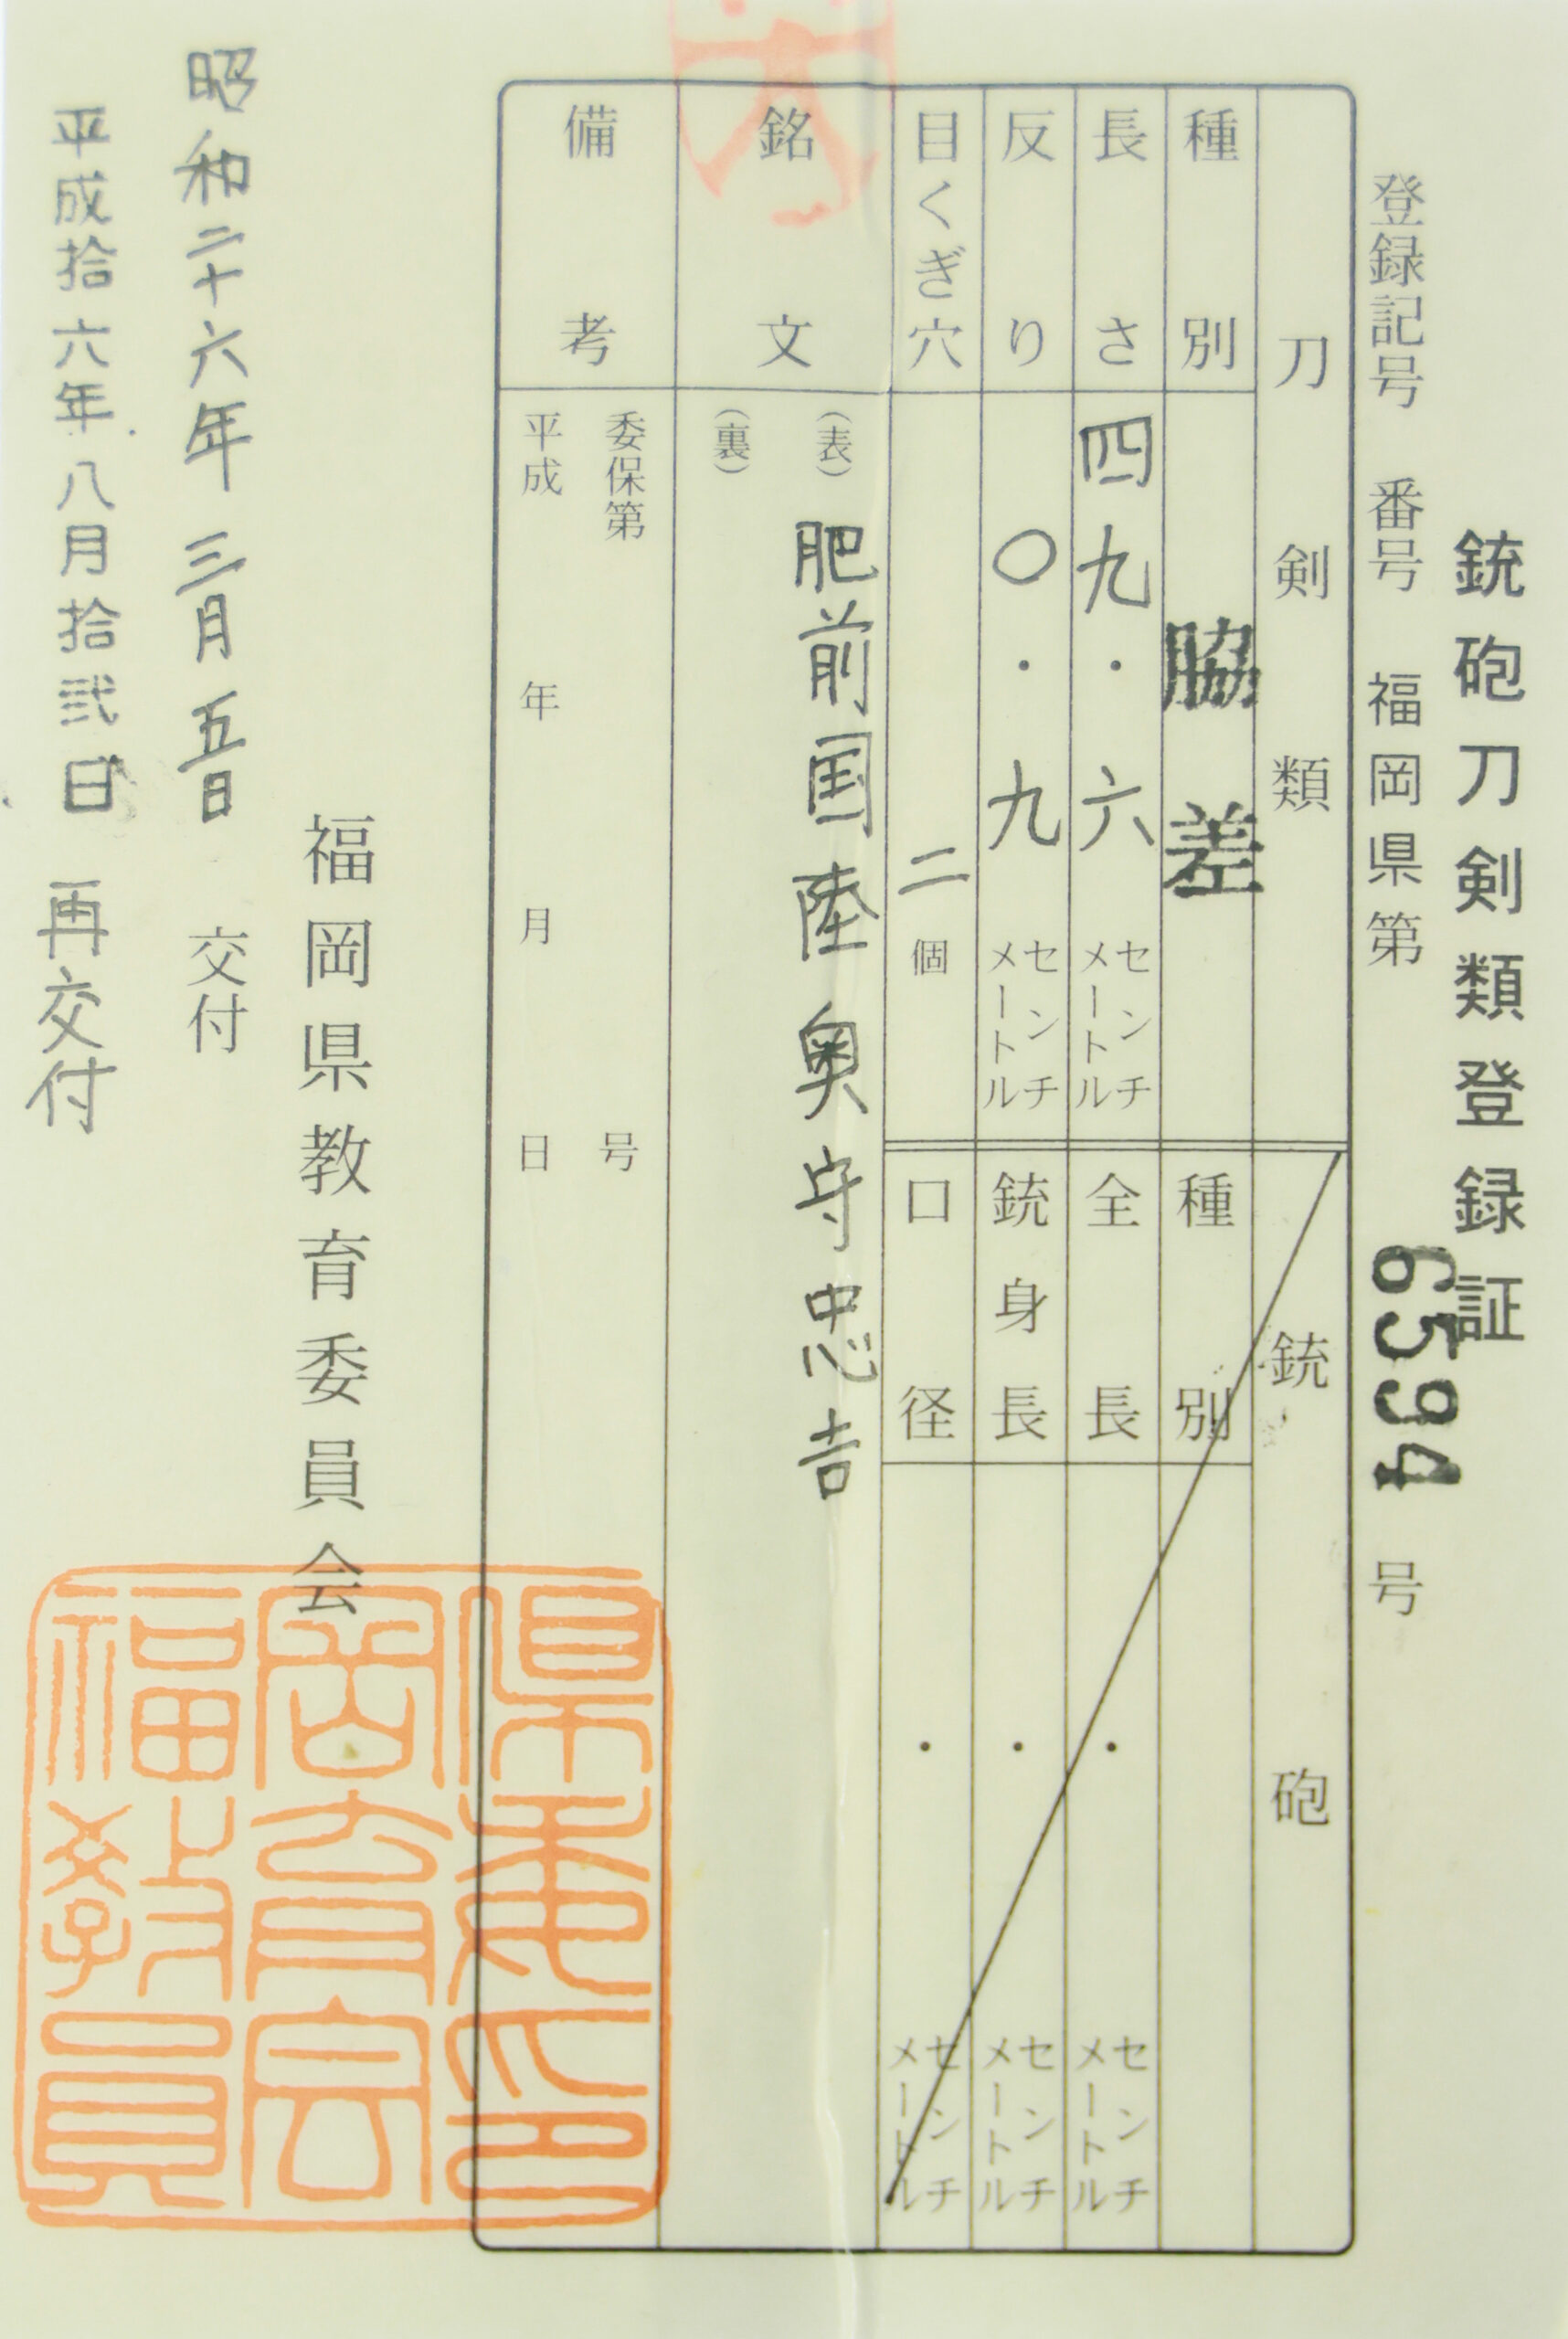 銃砲刀剣類登録証
登録記号 番号 福岡県第 6594 号
刀剣類
種別 脇差
長さ 四九.六 センチメートル
反り 〇.九 センチメートル
目くぎ穴 二個
銃砲
種別
全長 . センチメートル
銃身長 . センチメートル
口径 . センチメートル
銘文
(表) 肥前国陸奥守忠吉
(裏)
備考
委保第 号
平成 年 月 日
福岡県教育委員会
昭和二十六年三月五日 交付
平成拾六年八月拾弐日 再交付
福岡県教育委員会印